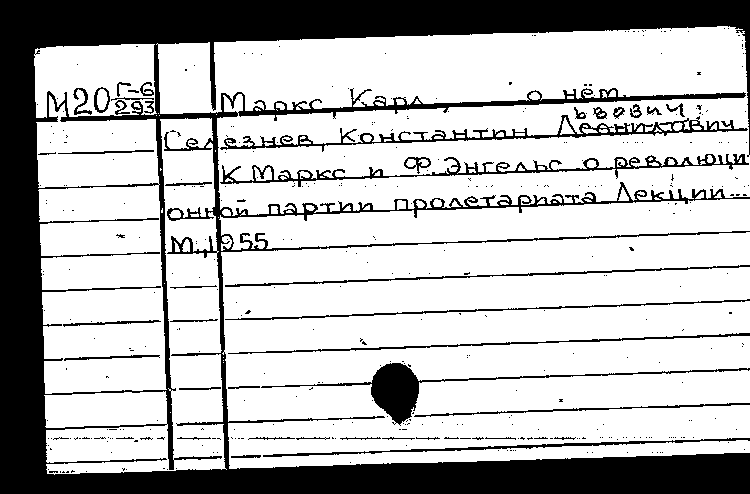 М20 Г-6/293 Маркс, Карл, о нём.
ьвович:
Селезнев, Константин Леонидович
К Маркс и Ф. Энгельс о революци
онной партии пролетариата Лекции...
М., 1955